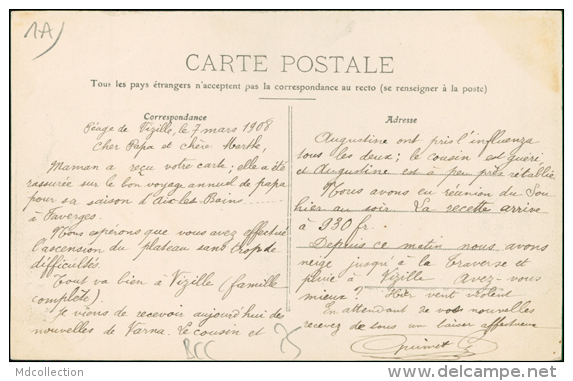 1A)
CARTE POSTALE
Tous les pays étrangers n'acceptent pas la correspondance au recto (se renseigner à la poste)
Correspondance
Péage de Vizille, le 7 mars 1908
Cher Papa et chère Marthe,
Maman a reçu votre carte ; elle a été
rassurée sur le bon voyage annuel de papa
pour sa saison d'Aix les Bains
à Faverges.
Nous espérons que vous avez effectué
l'ascension du plateau sans trop de
difficultés.
Tout va bien à Vizille (famille
complète)
Je viens de recevoir aujourd'hui de
nouvelles de Varna. Le cousin et
Adresse
Augustine ont pris l'influenza
tous les deux ; le cousin est guéri
et Augustine est à peu près rétablie
Nous avons eu réunion du Sou
hier au soir. La recette arrive
à 930 fr.
Depuis ce matin nous avons
neige jusqu'à la Traverse et
pluie à Vizille Avez-vous
mieux ? Hier vent violent
En attendant de vos nouvelles
recevez de tous un baiser affectueux
BCC
Mdcollection
Delcampe.net